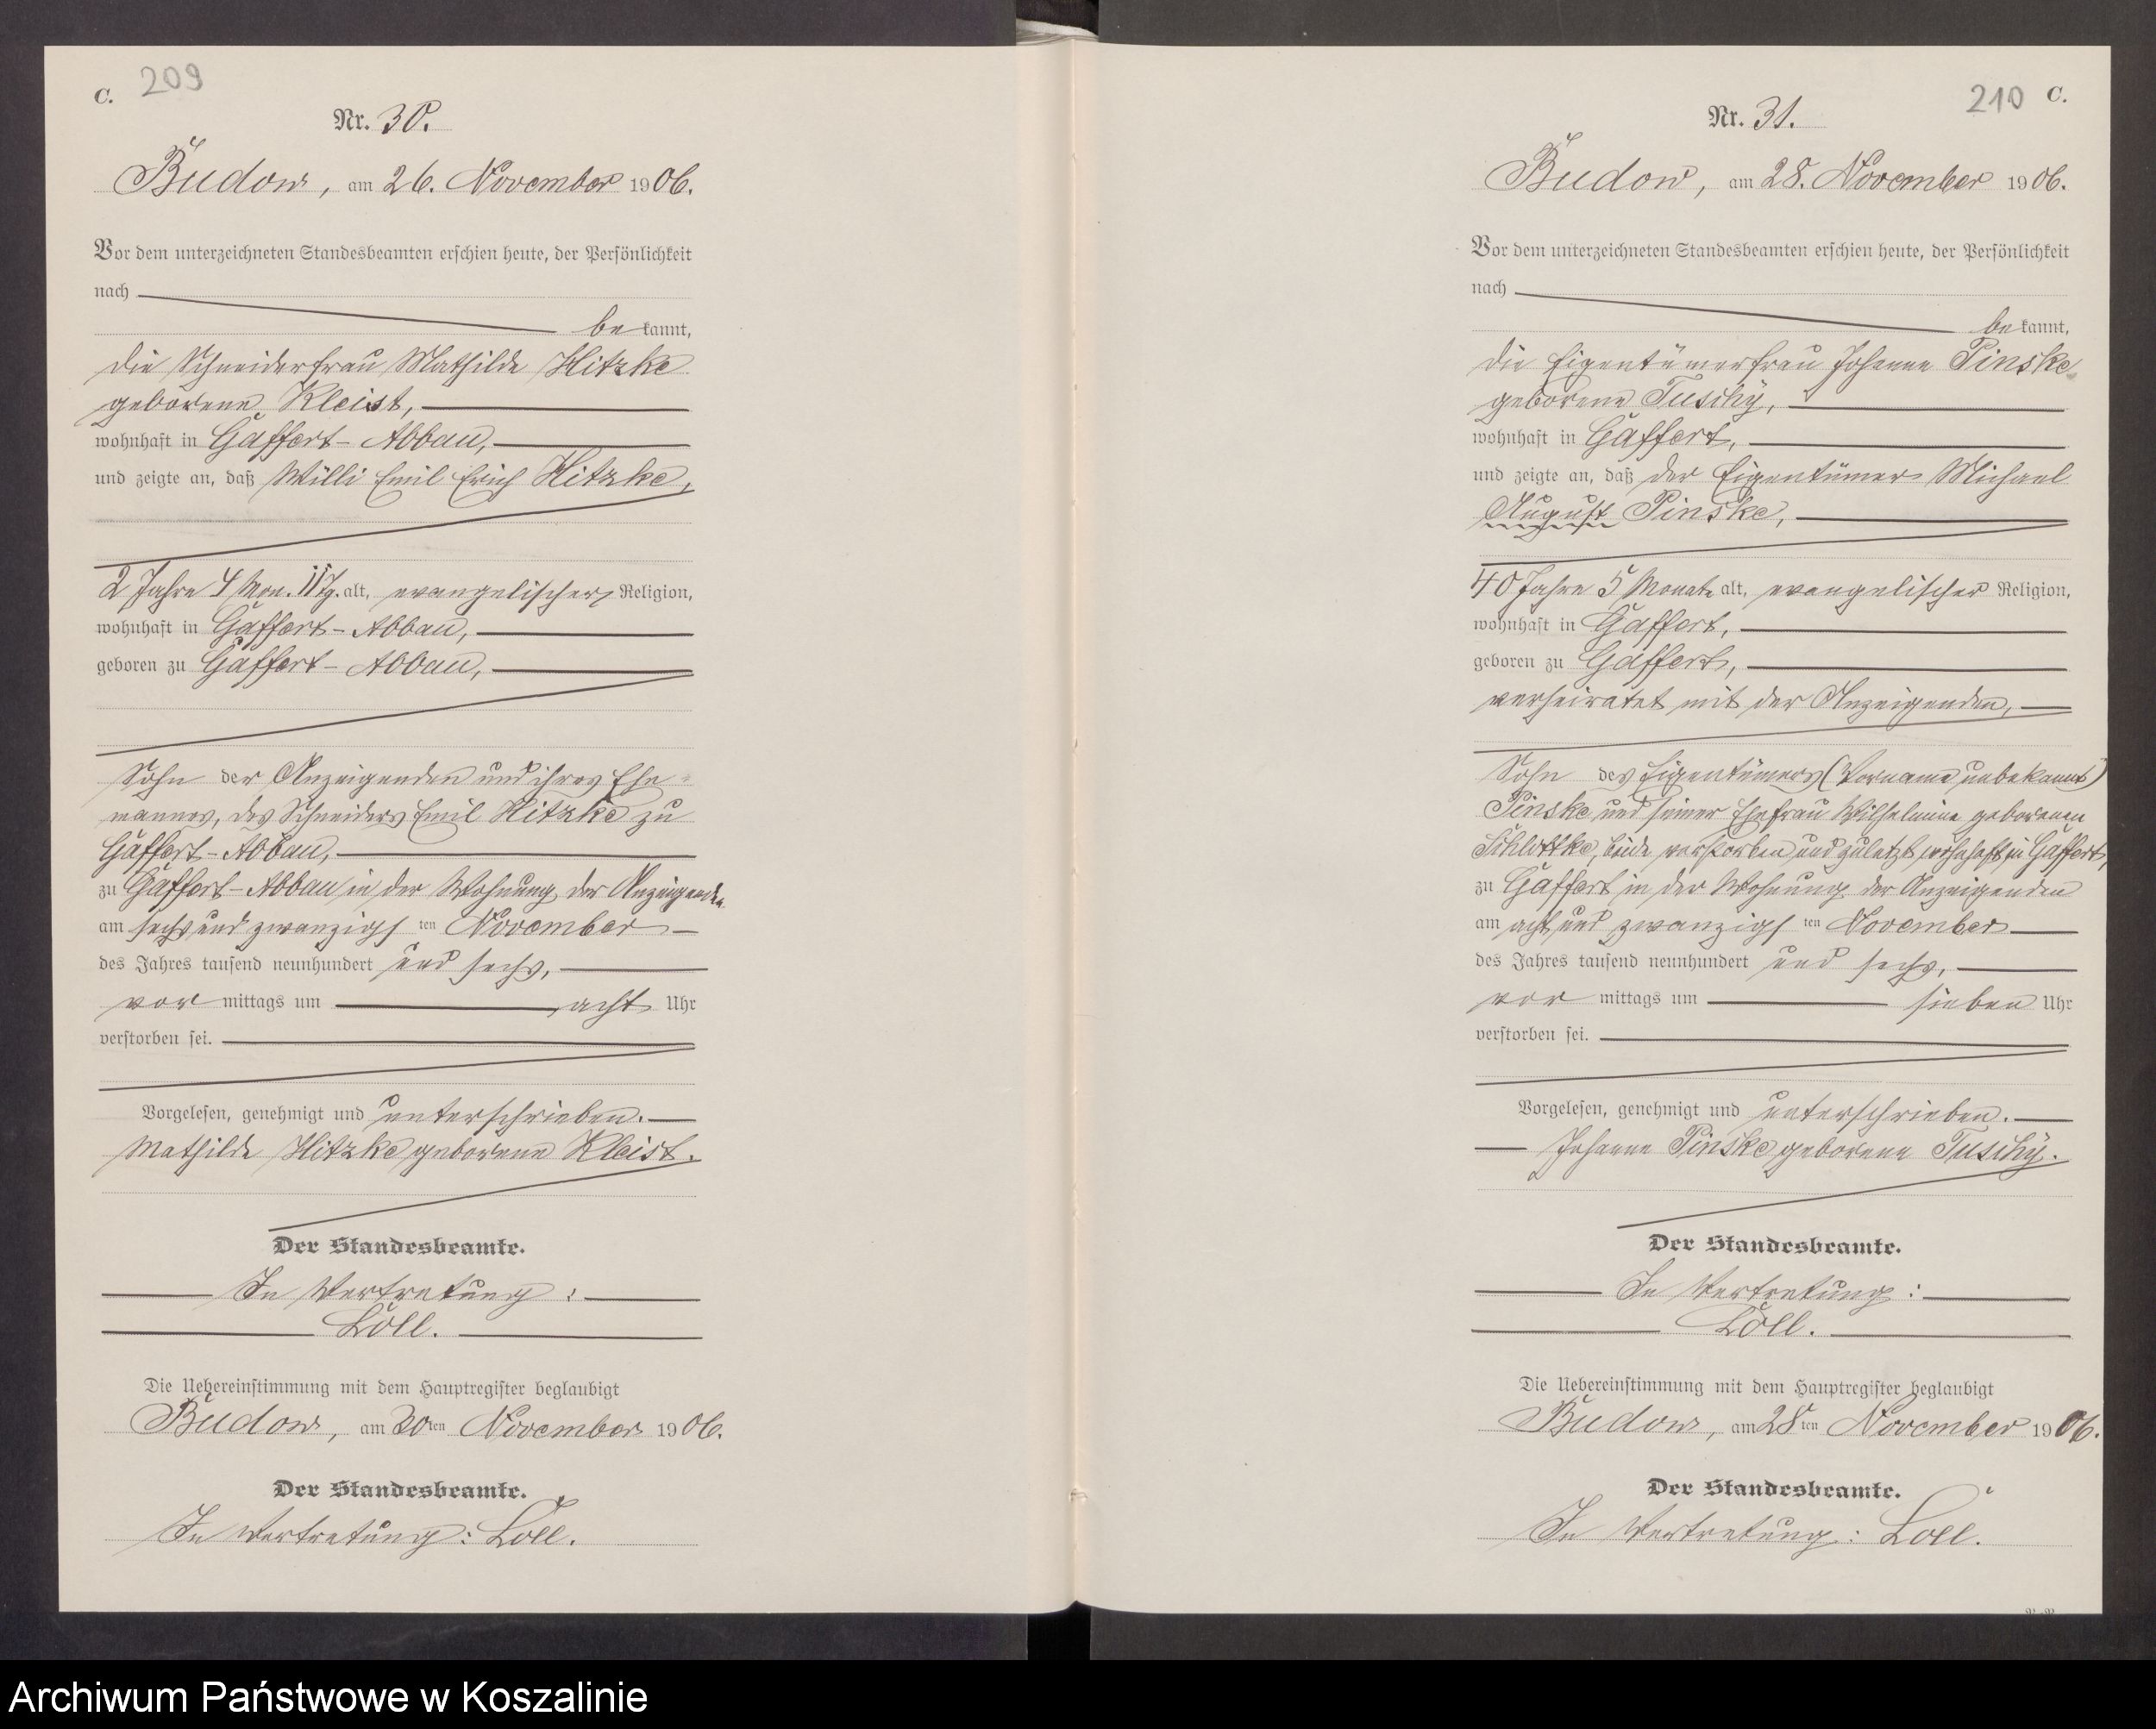 C. 209
Nr. 30.
Budow, am 26. November 1906.
Vor dem unterzeichneten Standesbeamten erschien heute, der Persönlichkeit
nach
bekannt,
die Schneiderfrau Mathilde Hitzke
geborene Kleist,
wohnhaft in Gaffert-Abbau,
und zeigte an, daß Willi Emil Erich Hitzke,
2 Jahre 4 Mon. 11 Tg. alt, evangelischer Religion,
wohnhaft in Gaffert-Abbau,
geboren zu Gaffert-Abbau,
Sohn der Anzeigenden und ihres Ehe-
mannes, des Schneiders Emil Hitzke zu
Gaffert-Abbau,
zu Gaffert-Abbau in der Wohnung der Anzeigenden
am sechs und zwanzigsten November
des Jahres tausend neunhundert und sechs,
vormittags um acht Uhr
verstorben sei.
Vorgelesen, genehmigt und unterschrieben.
Mathilde Hitzke geborene Kleist.
Der Standesbeamte.
In Vertretung:
Loll.
Die Uebereinstimmung mit dem Hauptregister beglaubigt
Budow, am ten November 1906.
Der Standesbeamte.
In Vertretung: Loll.
210 C.
Nr. 31.
Budow, am 28. November 1906.
Vor dem unterzeichneten Standesbeamten erschien heute, der Persönlichkeit
nach
bekannt,
die Eigentümerfrau Johanne Pinske
geborene Tuschy,
wohnhaft in Gaffert,
und zeigte an, daß der Eigentümer Michael
August Pinske,
40 Jahre 5 Monate alt, evangelischer Religion,
wohnhaft in Gaffert,
geboren zu Gaffert,
verheiratet mit der Anzeigenden,
Sohn des Eigentümers (Vorname unbekannt)
Pinske und seiner Ehefrau Wilhelmine geborenen
Schlottke, beide verstorben und zuletzt wohnhaft in Gaffert,
zu Gaffert in der Wohnung der Anzeigenden
am acht und zwanzigsten November
des Jahres tausend neunhundert und sechs,
vormittags um sieben Uhr
verstorben sei.
Vorgelesen, genehmigt und unterschrieben.
Johanne Pinske geborene Tuschy.
Der Standesbeamte.
In Vertretung:
Loll.
Die Uebereinstimmung mit dem Hauptregister beglaubigt
Budow, am 28ten November 1906.
Der Standesbeamte.
In Vertretung: Loll.
Archiwum Państwowe w Koszalinie